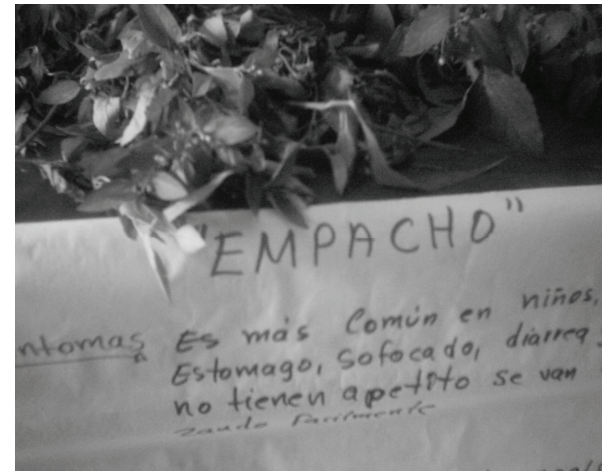 "EMPACHO"
ntomas Es más Común en niños,
Estomago, sofocado, diárrea
no tienen apetito se van
zando facilmente